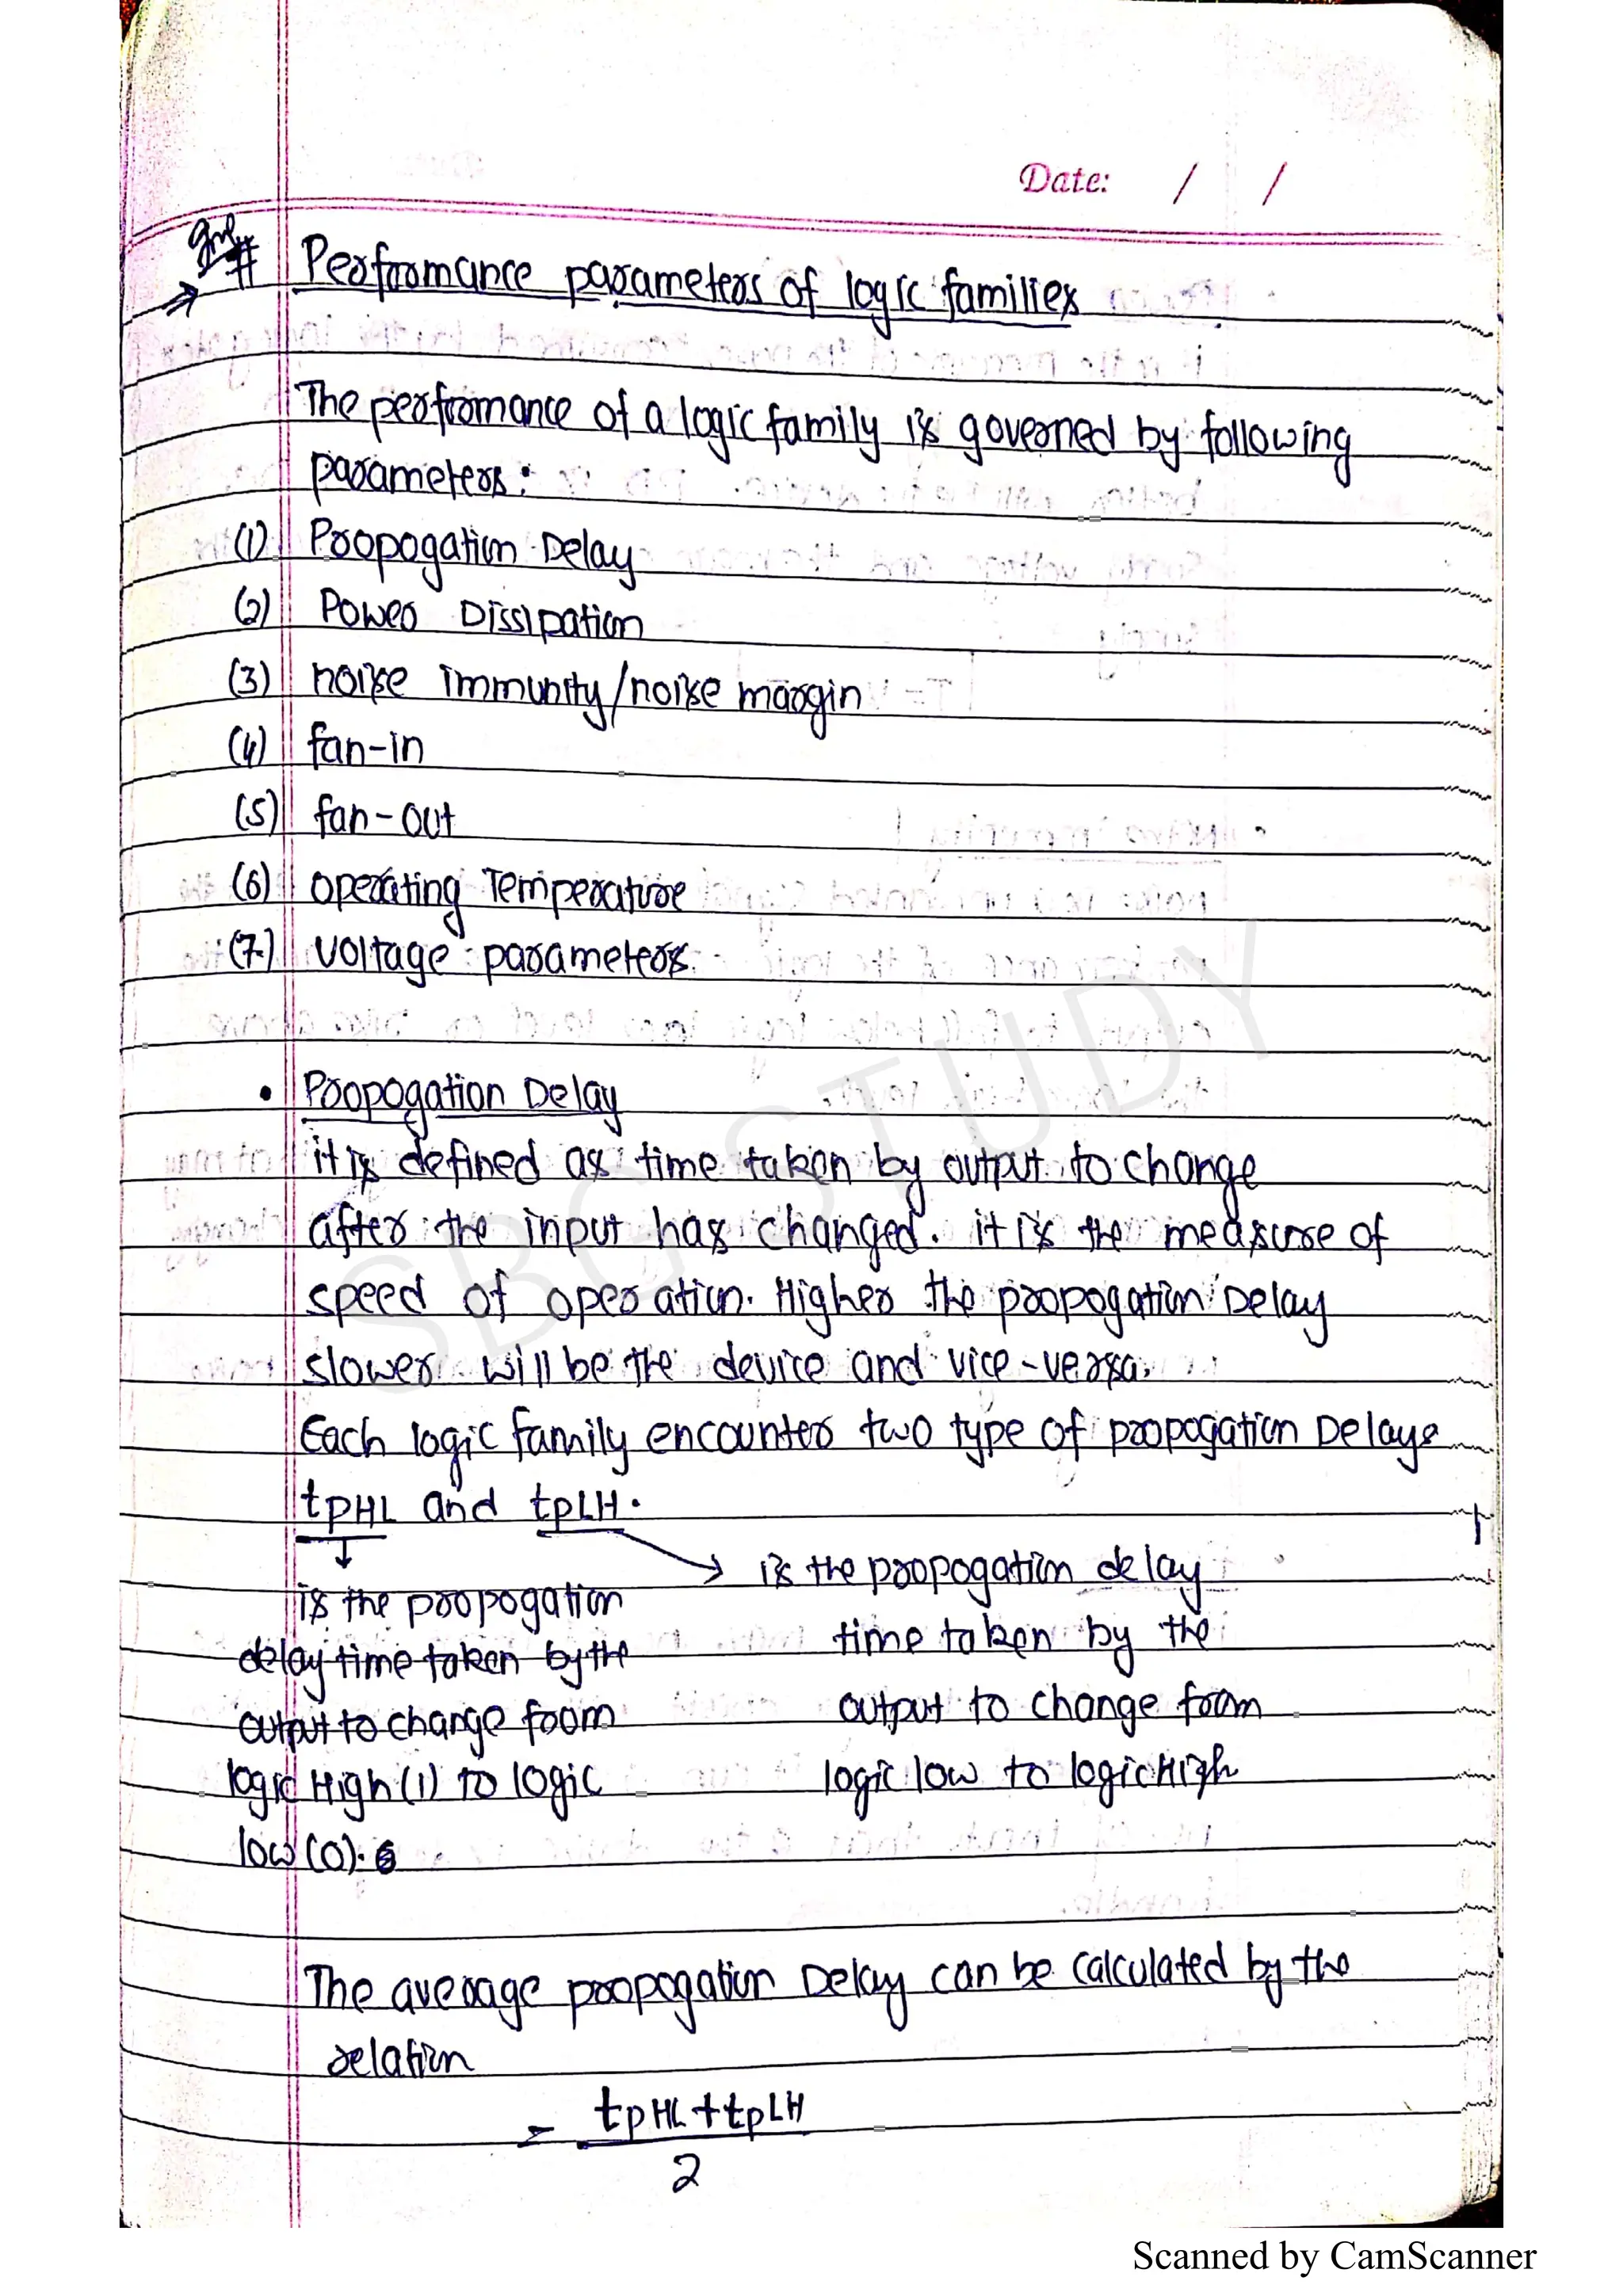 Date: / /
# Performance parameters of logic families
The performance of a logic family is governed by following
parameters:
(1) Propogation Delay
(2) Power Dissipation
(3) noise immunity/noise margin
(4) fan-in
(5) fan-out
(6) operating Temperature
(7) voltage parameters.
• Propogation Delay
it is defined as time taken by output to change
after the input has changed. it is the measure of
speed of operation. Higher the propogation Delay
slower will be the device and vice-versa.
Each logic family encounters two type of propogation Delays
tpHL and tpLH.
↓
is the propogation
delay time taken by the
output to change from
logic High (1) to logic
low (0).
→ is the propogation delay
time taken by the
output to change from
logic low to logic High
The average propogation Delay can be calculated by the
relation
= tpHL + tpLH
2
SBG STUDY
Scanned by CamScanner